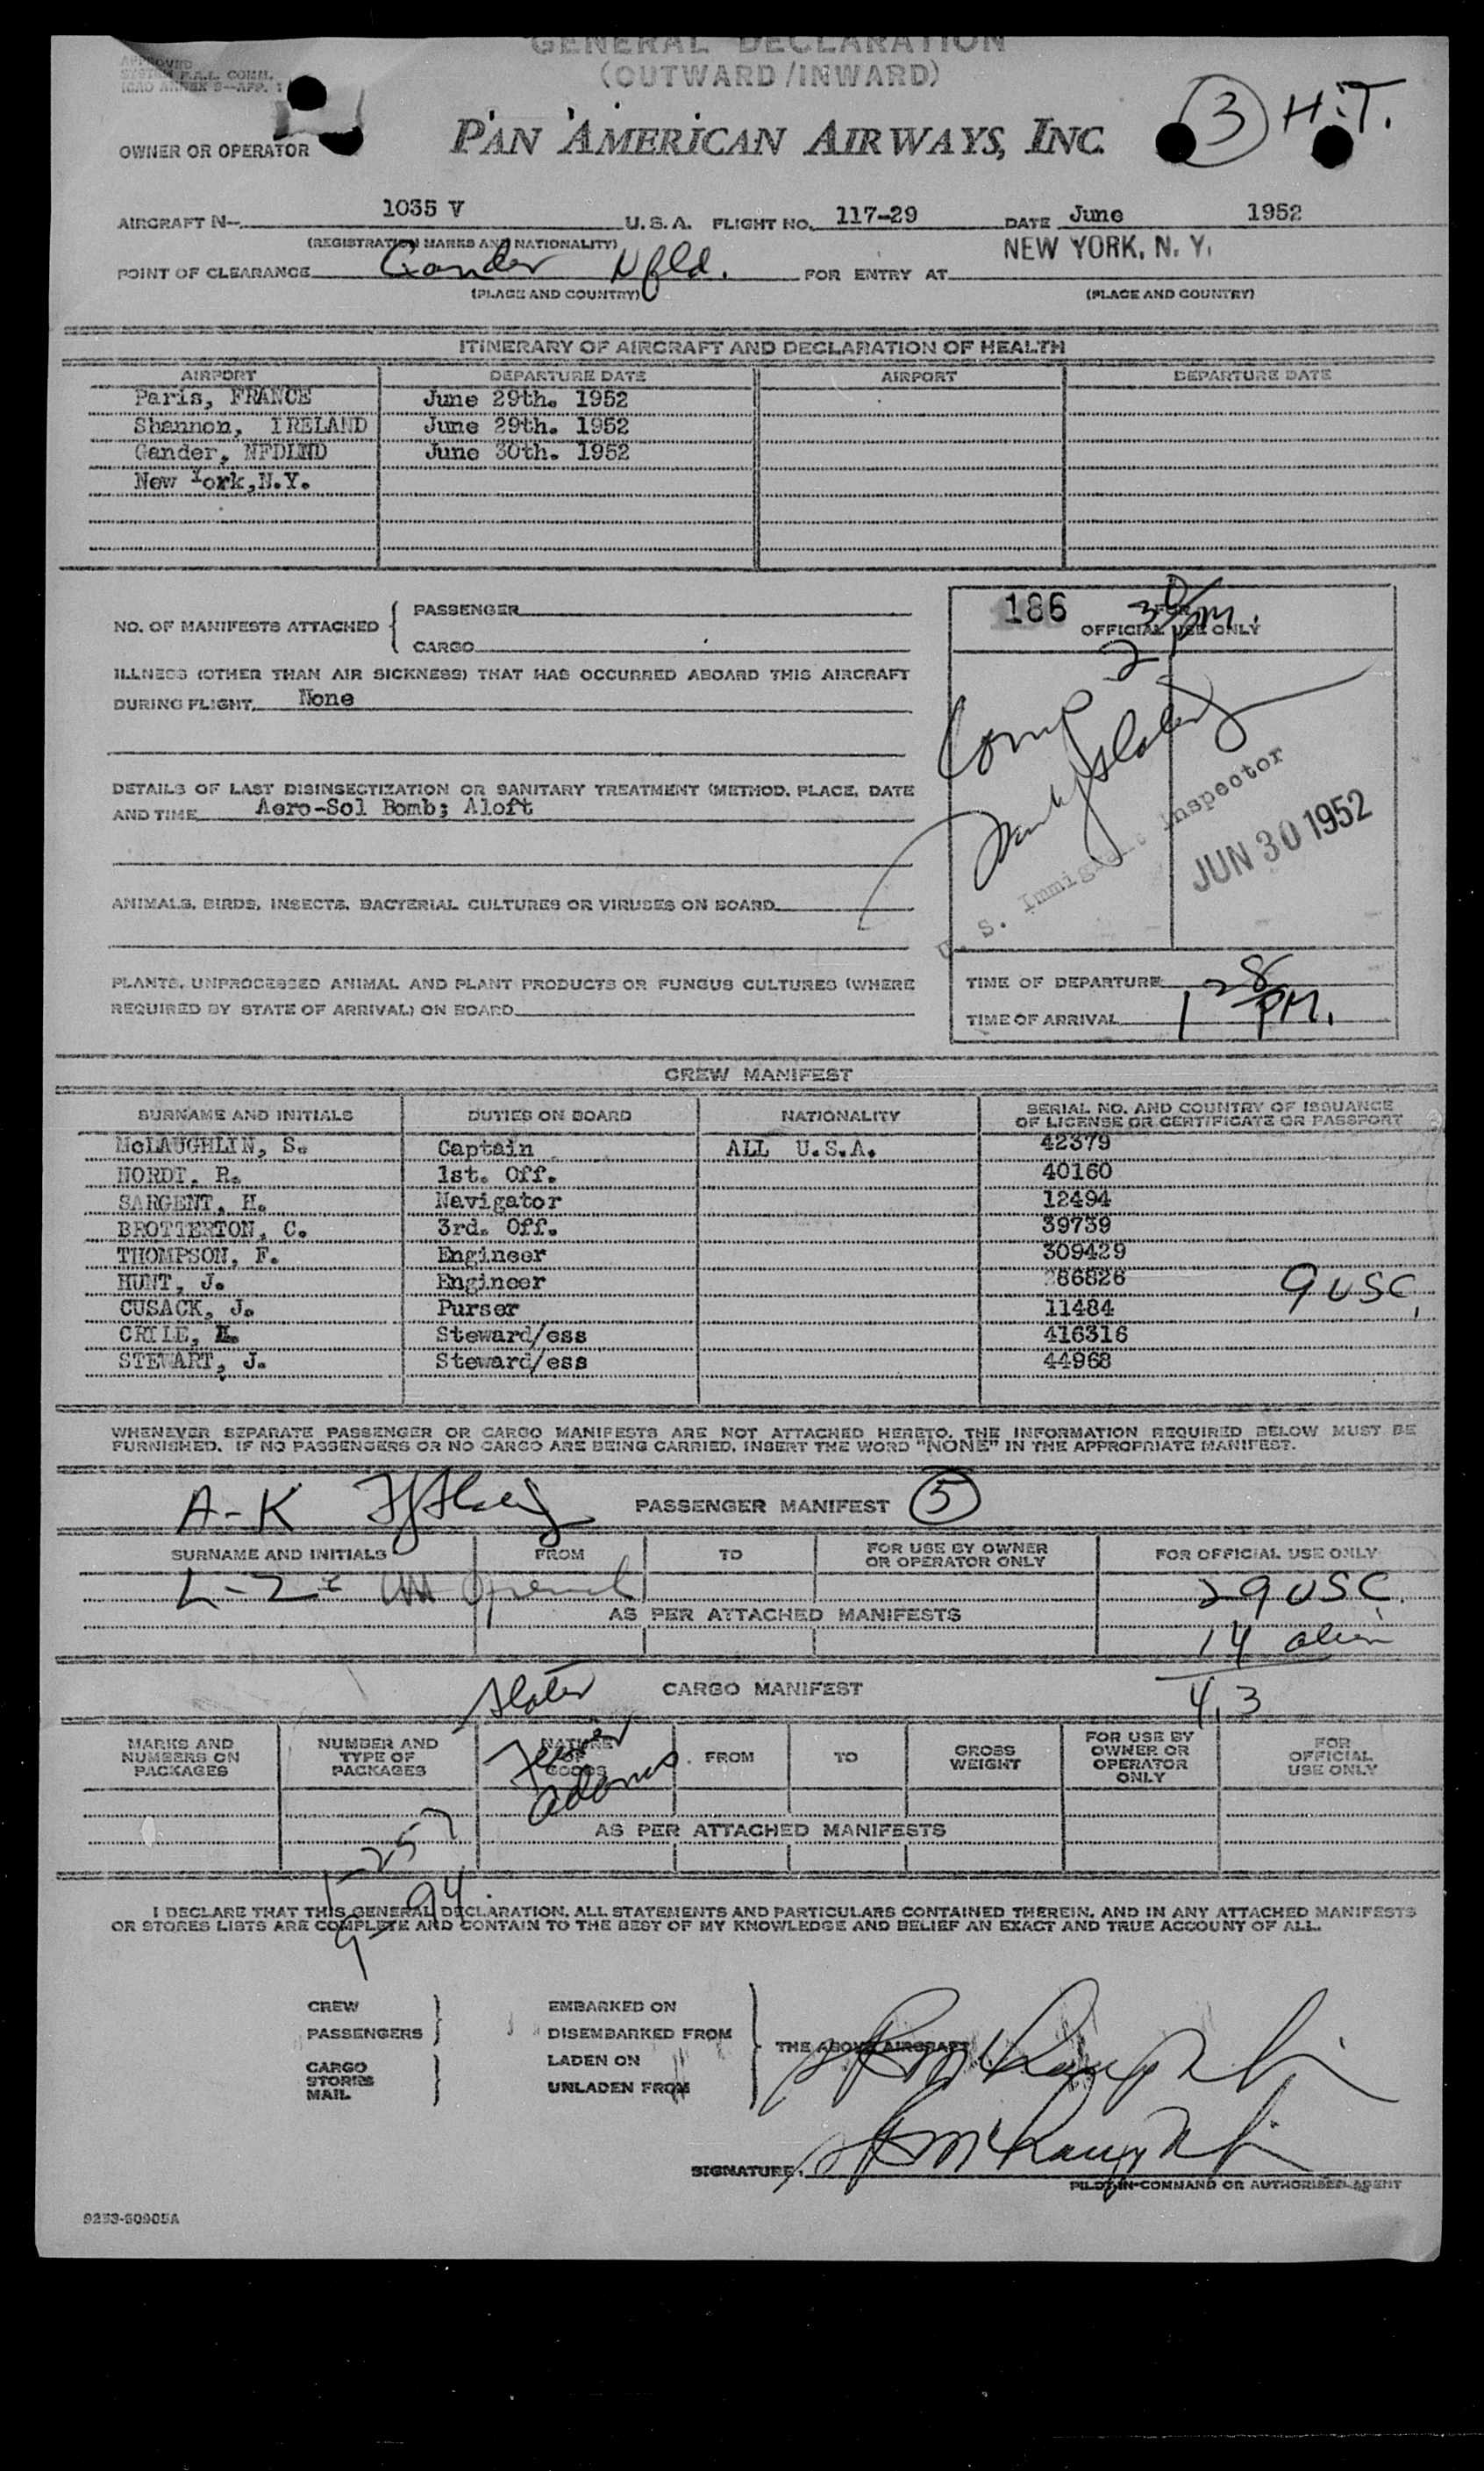 GENERAL DECLARATION
(OUTWARD/INWARD)
APPROVED
SYSTEM F.A.L. COMM.
ICAO ANNEX 9—APP. 1
3 H.T.
OWNER OR OPERATOR PAN AMERICAN AIRWAYS, INC.
AIRCRAFT N— 1035 V U.S.A. FLIGHT NO. 117-29 DATE June 1952
(REGISTRATION MARKS AND NATIONALITY)
NEW YORK, N. Y.
POINT OF CLEARANCE Gander Nfld. FOR ENTRY AT
(PLACE AND COUNTRY) (PLACE AND COUNTRY)
ITINERARY OF AIRCRAFT AND DECLARATION OF HEALTH
AIRPORT DEPARTURE DATE AIRPORT DEPARTURE DATE
Paris, FRANCE June 29th. 1952
Shannon, IRELAND June 29th. 1952
Gander, NFDLND June 30th. 1952
New York,N.Y.
NO. OF MANIFESTS ATTACHED { PASSENGER
CARGO
186 FOR
OFFICIAL USE ONLY
2 30 PM.
Comp
ILLNESS (OTHER THAN AIR SICKNESS) THAT HAS OCCURRED ABOARD THIS AIRCRAFT
DURING FLIGHT. None
DETAILS OF LAST DISINSECTIZATION OR SANITARY TREATMENT (METHOD, PLACE, DATE
AND TIME Aero-Sol Bomb; Aloft
U. S. Immigrant Inspector
JUN 30 1952
ANIMALS, BIRDS, INSECTS, BACTERIAL CULTURES OR VIRUSES ON BOARD
PLANTS, UNPROCESSED ANIMAL AND PLANT PRODUCTS OR FUNGUS CULTURES (WHERE
REQUIRED BY STATE OF ARRIVAL) ON BOARD
TIME OF DEPARTURE
TIME OF ARRIVAL 1 28 PM.
CREW MANIFEST
SURNAME AND INITIALS DUTIES ON BOARD NATIONALITY SERIAL NO. AND COUNTRY OF ISSUANCE
OF LICENSE OR CERTIFICATE OR PASSPORT
McLAUGHLIN, S. Captain ALL U.S.A. 42379
NORDI, R. 1st. Off. 40160
SARGENT, H. Navigator 12494
BROTTERTON, C. 3rd. Off. 39739
THOMPSON, F. Engineer 309429
HUNT, J. Engineer 86826 9 USC.
CUSACK, J. Purser 11484
CRILE, Steward/ess 416316
STEWART, J. Steward/ess 44968
WHENEVER SEPARATE PASSENGER OR CARGO MANIFESTS ARE NOT ATTACHED HERETO, THE INFORMATION REQUIRED BELOW MUST BE
FURNISHED. IF NO PASSENGERS OR NO CARGO ARE BEING CARRIED, INSERT THE WORD "NONE" IN THE APPROPRIATE MANIFEST.
A-K PASSENGER MANIFEST 5
SURNAME AND INITIALS FROM TO FOR USE BY OWNER
OR OPERATOR ONLY FOR OFFICIAL USE ONLY
L-Z 29 USC.
AS PER ATTACHED MANIFESTS
14 alien
43
Slater CARGO MANIFEST
MARKS AND
NUMBERS ON
PACKAGES NUMBER AND
TYPE OF
PACKAGES NATURE
OF
GOODS FROM TO GROSS
WEIGHT FOR USE BY
OWNER OR
OPERATOR
ONLY FOR
OFFICIAL
USE ONLY
Adams
AS PER ATTACHED MANIFESTS
I DECLARE THAT THIS GENERAL DECLARATION, ALL STATEMENTS AND PARTICULARS CONTAINED THEREIN, AND IN ANY ATTACHED MANIFESTS
OR STORES LISTS ARE COMPLETE AND CONTAIN TO THE BEST OF MY KNOWLEDGE AND BELIEF AN EXACT AND TRUE ACCOUNT OF ALL.
CREW EMBARKED ON
PASSENGERS DISEMBARKED FROM THE ABOVE AIRCRAFT
CARGO LADEN ON
STORES
MAIL UNLADEN FROM
SIGNATURE:
PILOT-IN-COMMAND OR AUTHORISED AGENT
9253-50905A